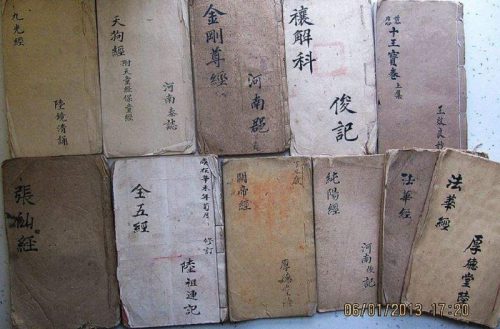 九光經
陸境清誦
天狗經
附天童經保童經
河南泰誌
金剛尊經
河南郡
禳解科
俊記
十王寶卷上集
張仙經
全五經
修訂
陸祖連記
關帝經
純陽經
河南俊記
法華經
法華經
厚德堂陸
06/01/2013 17:20